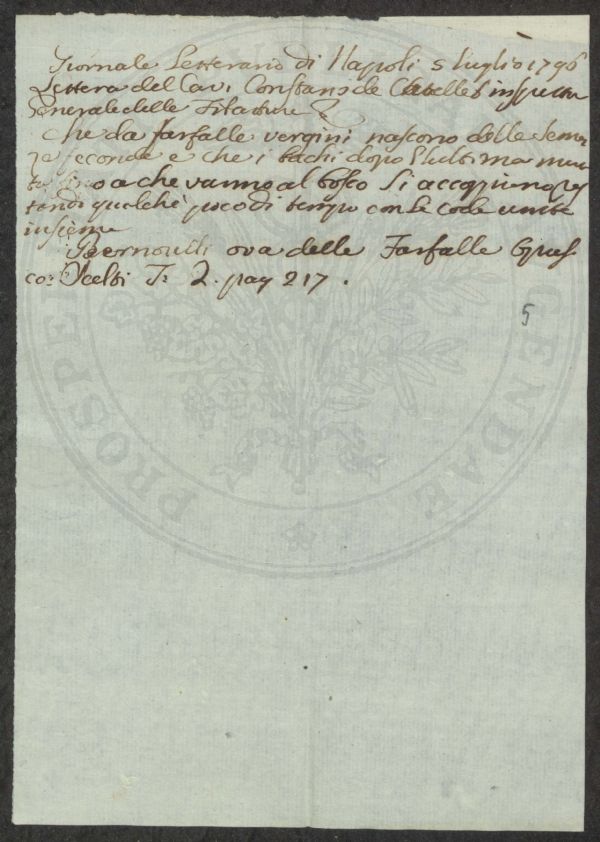 Giornale Letterario di Napoli 5 luglio 1796
Lettera del Cav. Constans de Castellet inspettor
Generale delle Filature
Che da farfalle vergini nascono delle semen
ze feconde e che i bachi dopo l'ultima mu
ta fino a che vanno al bosco si accoppiano res
tando qualche poco di tempo con le code unite
insieme
Bernoulli ova delle Farfalle Opus
co: Scelti T: 2. pag 217.
5
PROSPE
CENDAE